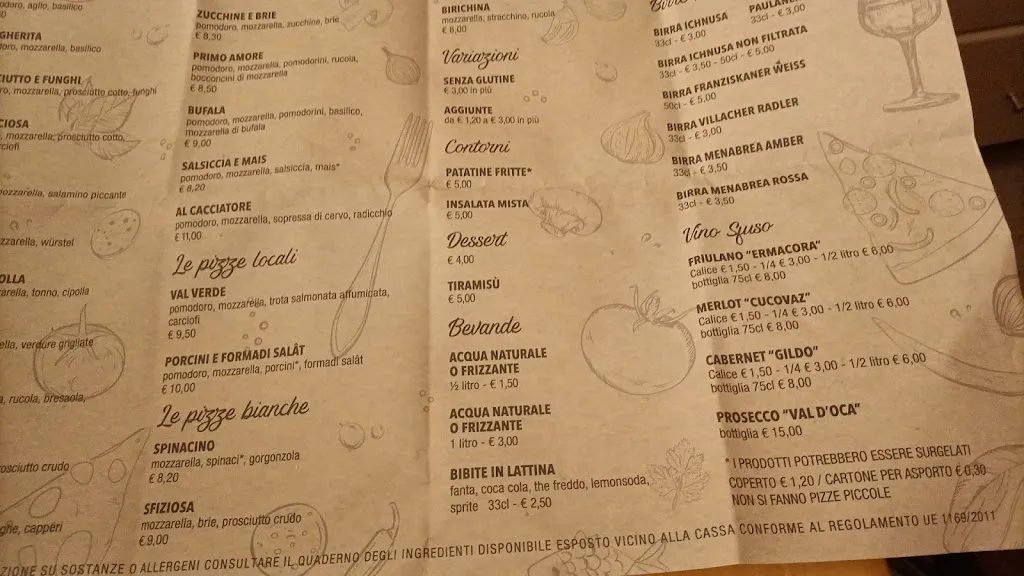 doro, aglio, basilico
GHERITA
doro, mozzarella, basilico
CIUTTO E FUNGHI
ro, mozzarella, prosciutto cotto, funghi
CIOSA
mozzarella, prosciutto cotto,
rciofi
mozzarella, salamino piccante
zzarella, würstel
OLLA
arella, tonno, cipolla
ella, verdure grigliate
a, rucola, bresaola,
rosciutto crudo
ghe, capperi
ZUCCHINE E BRIE
pomodoro, mozzarella, zucchine, brie
€ 8,30
PRIMO AMORE
pomodoro, mozzarella, pomodorini, rucola,
bocconcini di mozzarella
€ 8,50
BUFALA
pomodoro, mozzarella, pomodorini, basilico,
mozzarella di bufala
€ 9,00
SALSICCIA E MAIS
pomodoro, mozzarella, salsiccia, mais*
€ 8,20
AL CACCIATORE
pomodoro, mozzarella, sopressa di cervo, radicchio
€ 11,00
Le pizze locali
VAL VERDE
pomodoro, mozzarella, trota salmonata affumicata,
carciofi
€ 9,50
PORCINI E FORMADI SALÂT
pomodoro, mozzarella, porcini*, formadi salât
€ 10,00
Le pizze bianche
SPINACINO
mozzarella, spinaci*, gorgonzola
€ 8,20
SFIZIOSA
mozzarella, brie, prosciutto crudo
€ 9,00
BIRICHINA
mozzarella, stracchino, rucola
€ 8,00
Variazioni
SENZA GLUTINE
€ 3,00 in più
AGGIUNTE
da € 1,20 a € 3,00 in più
Contorni
PATATINE FRITTE*
€ 5,00
INSALATA MISTA
€ 5,00
Dessert
€ 4,00
TIRAMISÙ
€ 5,00
Bevande
ACQUA NATURALE
O FRIZZANTE
½ litro - € 1,50
ACQUA NATURALE
O FRIZZANTE
1 litro - € 3,00
BIBITE IN LATTINA
fanta, coca cola, the freddo, lemonsoda,
sprite 33cl - € 2,50
BIRRA ICHNUSA
33cl - € 3,00
PAULANE
33cl - € 3,00
BIRRA ICHNUSA NON FILTRATA
33cl - € 3,50 - 50cl - € 5,00
BIRRA FRANZISKANER WEISS
50cl - € 5,00
BIRRA VILLACHER RADLER
33cl - € 3,00
BIRRA MENABREA AMBER
33cl - € 3,50
BIRRA MENABREA ROSSA
33cl - € 3,50
Vino Sfuso
FRIULANO "ERMACORA"
Calice € 1,50 - 1/4 € 3,00 - 1/2 litro € 6,00
bottiglia 75cl € 8,00
MERLOT "CUCOVAZ"
Calice € 1,50 - 1/4 € 3,00 - 1/2 litro € 6,00
bottiglia 75cl € 8,00
CABERNET "GILDO"
Calice € 1,50 - 1/4 € 3,00 - 1/2 litro € 6,00
bottiglia 75cl € 8,00
PROSECCO "VAL D'OCA"
bottiglia € 15,00
* I PRODOTTI POTREBBERO ESSERE SURGELATI
COPERTO € 1,20 / CARTONE PER ASPORTO € 0,30
NON SI FANNO PIZZE PICCOLE
ZIONE SU SOSTANZE O ALLERGENI CONSULTARE IL QUADERNO DEGLI INGREDIENTI DISPONIBILE ESPOSTO VICINO ALLA CASSA CONFORME AL REGOLAMENTO UE 1169/2011